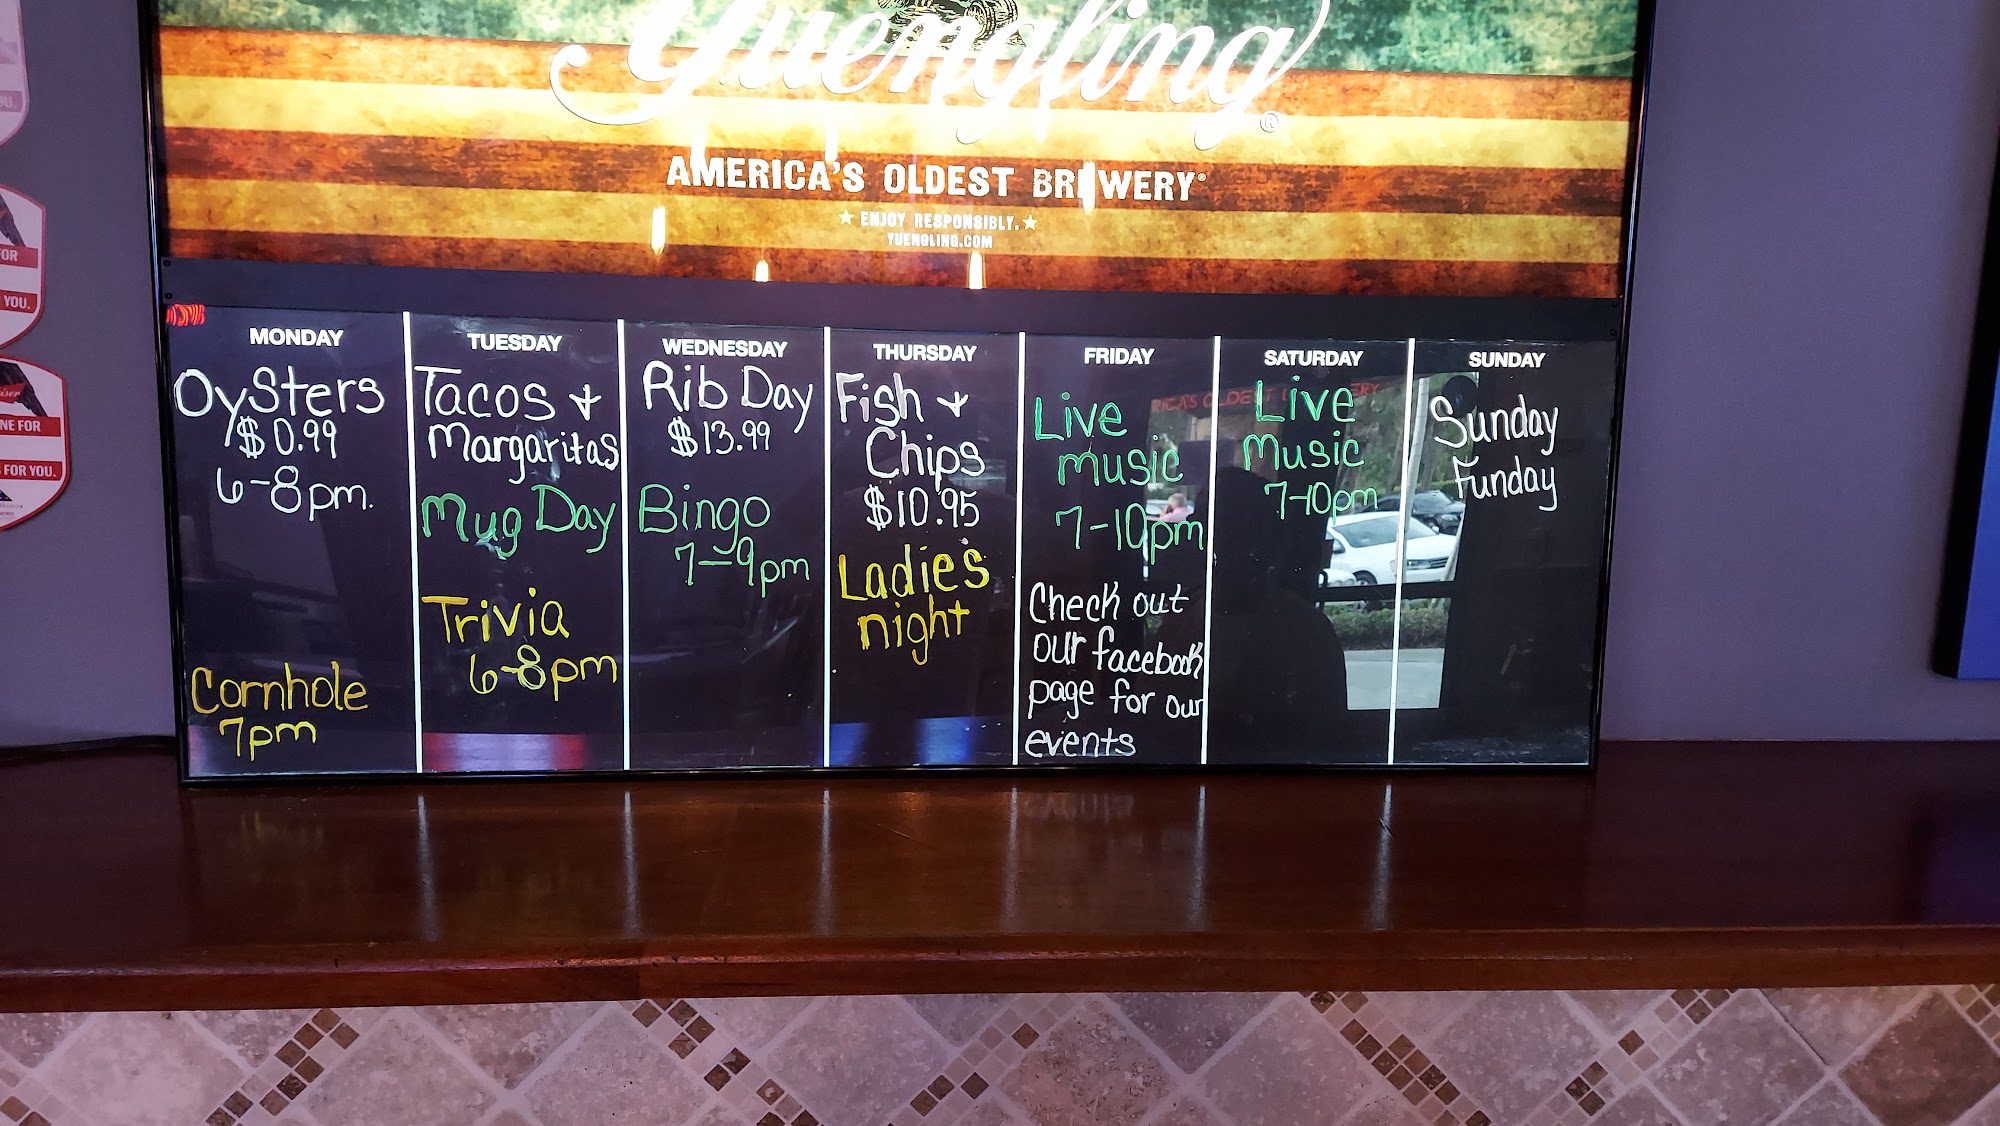 Yuengling®
AMERICA'S OLDEST BREWERY®
★ ENJOY RESPONSIBLY. ★
YUENGLING.COM
MONDAY
Oysters
$0.99
6-8pm.
Cornhole
7pm
TUESDAY
Tacos +
Margaritas
Mug Day
Trivia
6-8pm
WEDNESDAY
Rib Day
$13.99
Bingo
7-9pm
THURSDAY
Fish +
Chips
$10.95
Ladies
night
FRIDAY
Live
music
7-10pm
Check out
our facebook
page for our
events
SATURDAY
Live
Music
7-10pm
SUNDAY
Sunday
Funday
FOR
YOU.
NE FOR
FOR YOU.